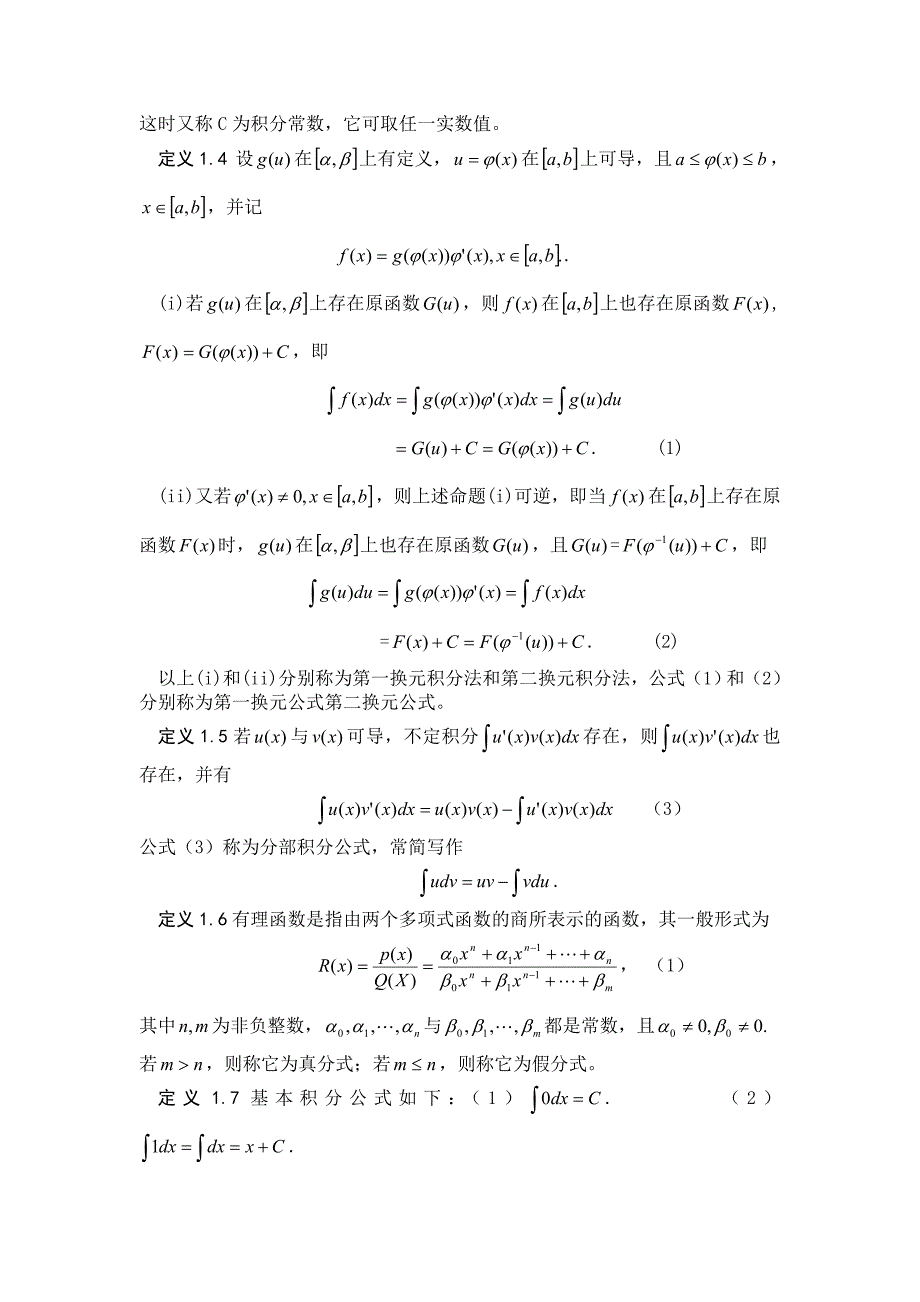 这时又称 C 为积分常数，它可取任一实数值。
定义1.4 设 g(u) 在 [α,β] 上有定义，u = φ(x) 在 [a,b] 上可导，且 a ≤ φ(x) ≤ b，
x ∈ [a,b]，并记
f(x) = g(φ(x))φ'(x), x ∈ [a,b]..
(i)若 g(u) 在 [α,β] 上存在原函数 G(u)，则 f(x) 在 [a,b] 上也存在原函数 F(x),
F(x) = G(φ(x)) + C，即
∫f(x)dx = ∫g(φ(x))φ'(x)dx = ∫g(u)du
= G(u) + C = G(φ(x)) + C. (1)
(ii)又若 φ'(x) ≠ 0, x ∈ [a,b]，则上述命题(i)可逆，即当 f(x) 在 [a,b] 上存在原
函数 F(x) 时，g(u) 在 [α,β] 上也存在原函数 G(u)，且 G(u) = F(φ⁻¹(u)) + C，即
∫g(u)du = ∫g(φ(x))φ'(x) = ∫f(x)dx
= F(x) + C = F(φ⁻¹(u)) + C. (2)
以上(i)和(ii)分别称为第一换元积分法和第二换元积分法，公式（1）和（2）
分别称为第一换元公式第二换元公式。
定义1.5 若 u(x) 与 v(x) 可导，不定积分 ∫u'(x)v(x)dx 存在，则 ∫u(x)v'(x)dx 也
存在，并有
∫u(x)v'(x)dx = u(x)v(x) − ∫u'(x)v(x)dx （3）
公式（3）称为分部积分公式，常简写作
∫udv = uv − ∫vdu.
定义1.6 有理函数是指由两个多项式函数的商所表示的函数，其一般形式为
R(x) = p(x)/Q(X) = (α₀xⁿ + α₁xⁿ⁻¹ + ⋯ + αₙ)/(β₀xⁿ + β₁xⁿ⁻¹ + ⋯ + βₘ)， （1）
其中 n,m 为非负整数，α₀,α₁,⋯,αₙ 与 β₀,β₁,⋯,βₘ 都是常数，且 α₀ ≠ 0, β₀ ≠ 0.
若 m > n，则称它为真分式；若 m ≤ n，则称它为假分式。
定义1.7 基本积分公式如下：（1）∫0dx = C. （2）
∫1dx = ∫dx = x + C.